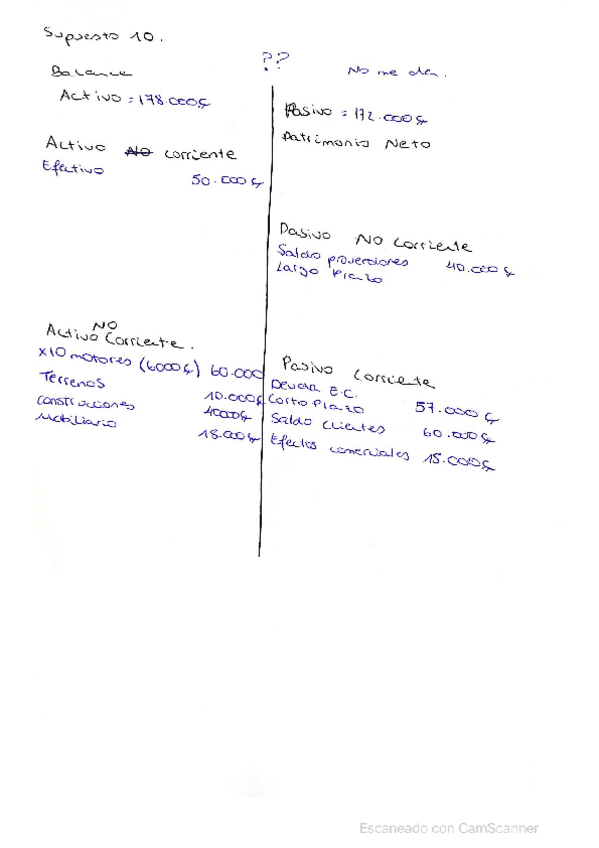 Supuesto 10.
??
No me da.
Balance
Activo = 178.000€
Pasivo = 172.000€
Patrimonio Neto
Activo NO corriente
Efectivo 50.000€
Pasivo NO corriente
Saldo proveedores 40.000€
Largo Plazo
NO
Activo Corriente.
x10 motores (6000€) 60.000
Terrenos 10.000€
Construcciones 40000€
Mobiliario 18.000€
Pasivo corriente
Deuda E.C.
Corto Plazo 57.000€
Saldo Clientes 60.000€
Efectos comerciales 15.000€
Escaneado con CamScanner